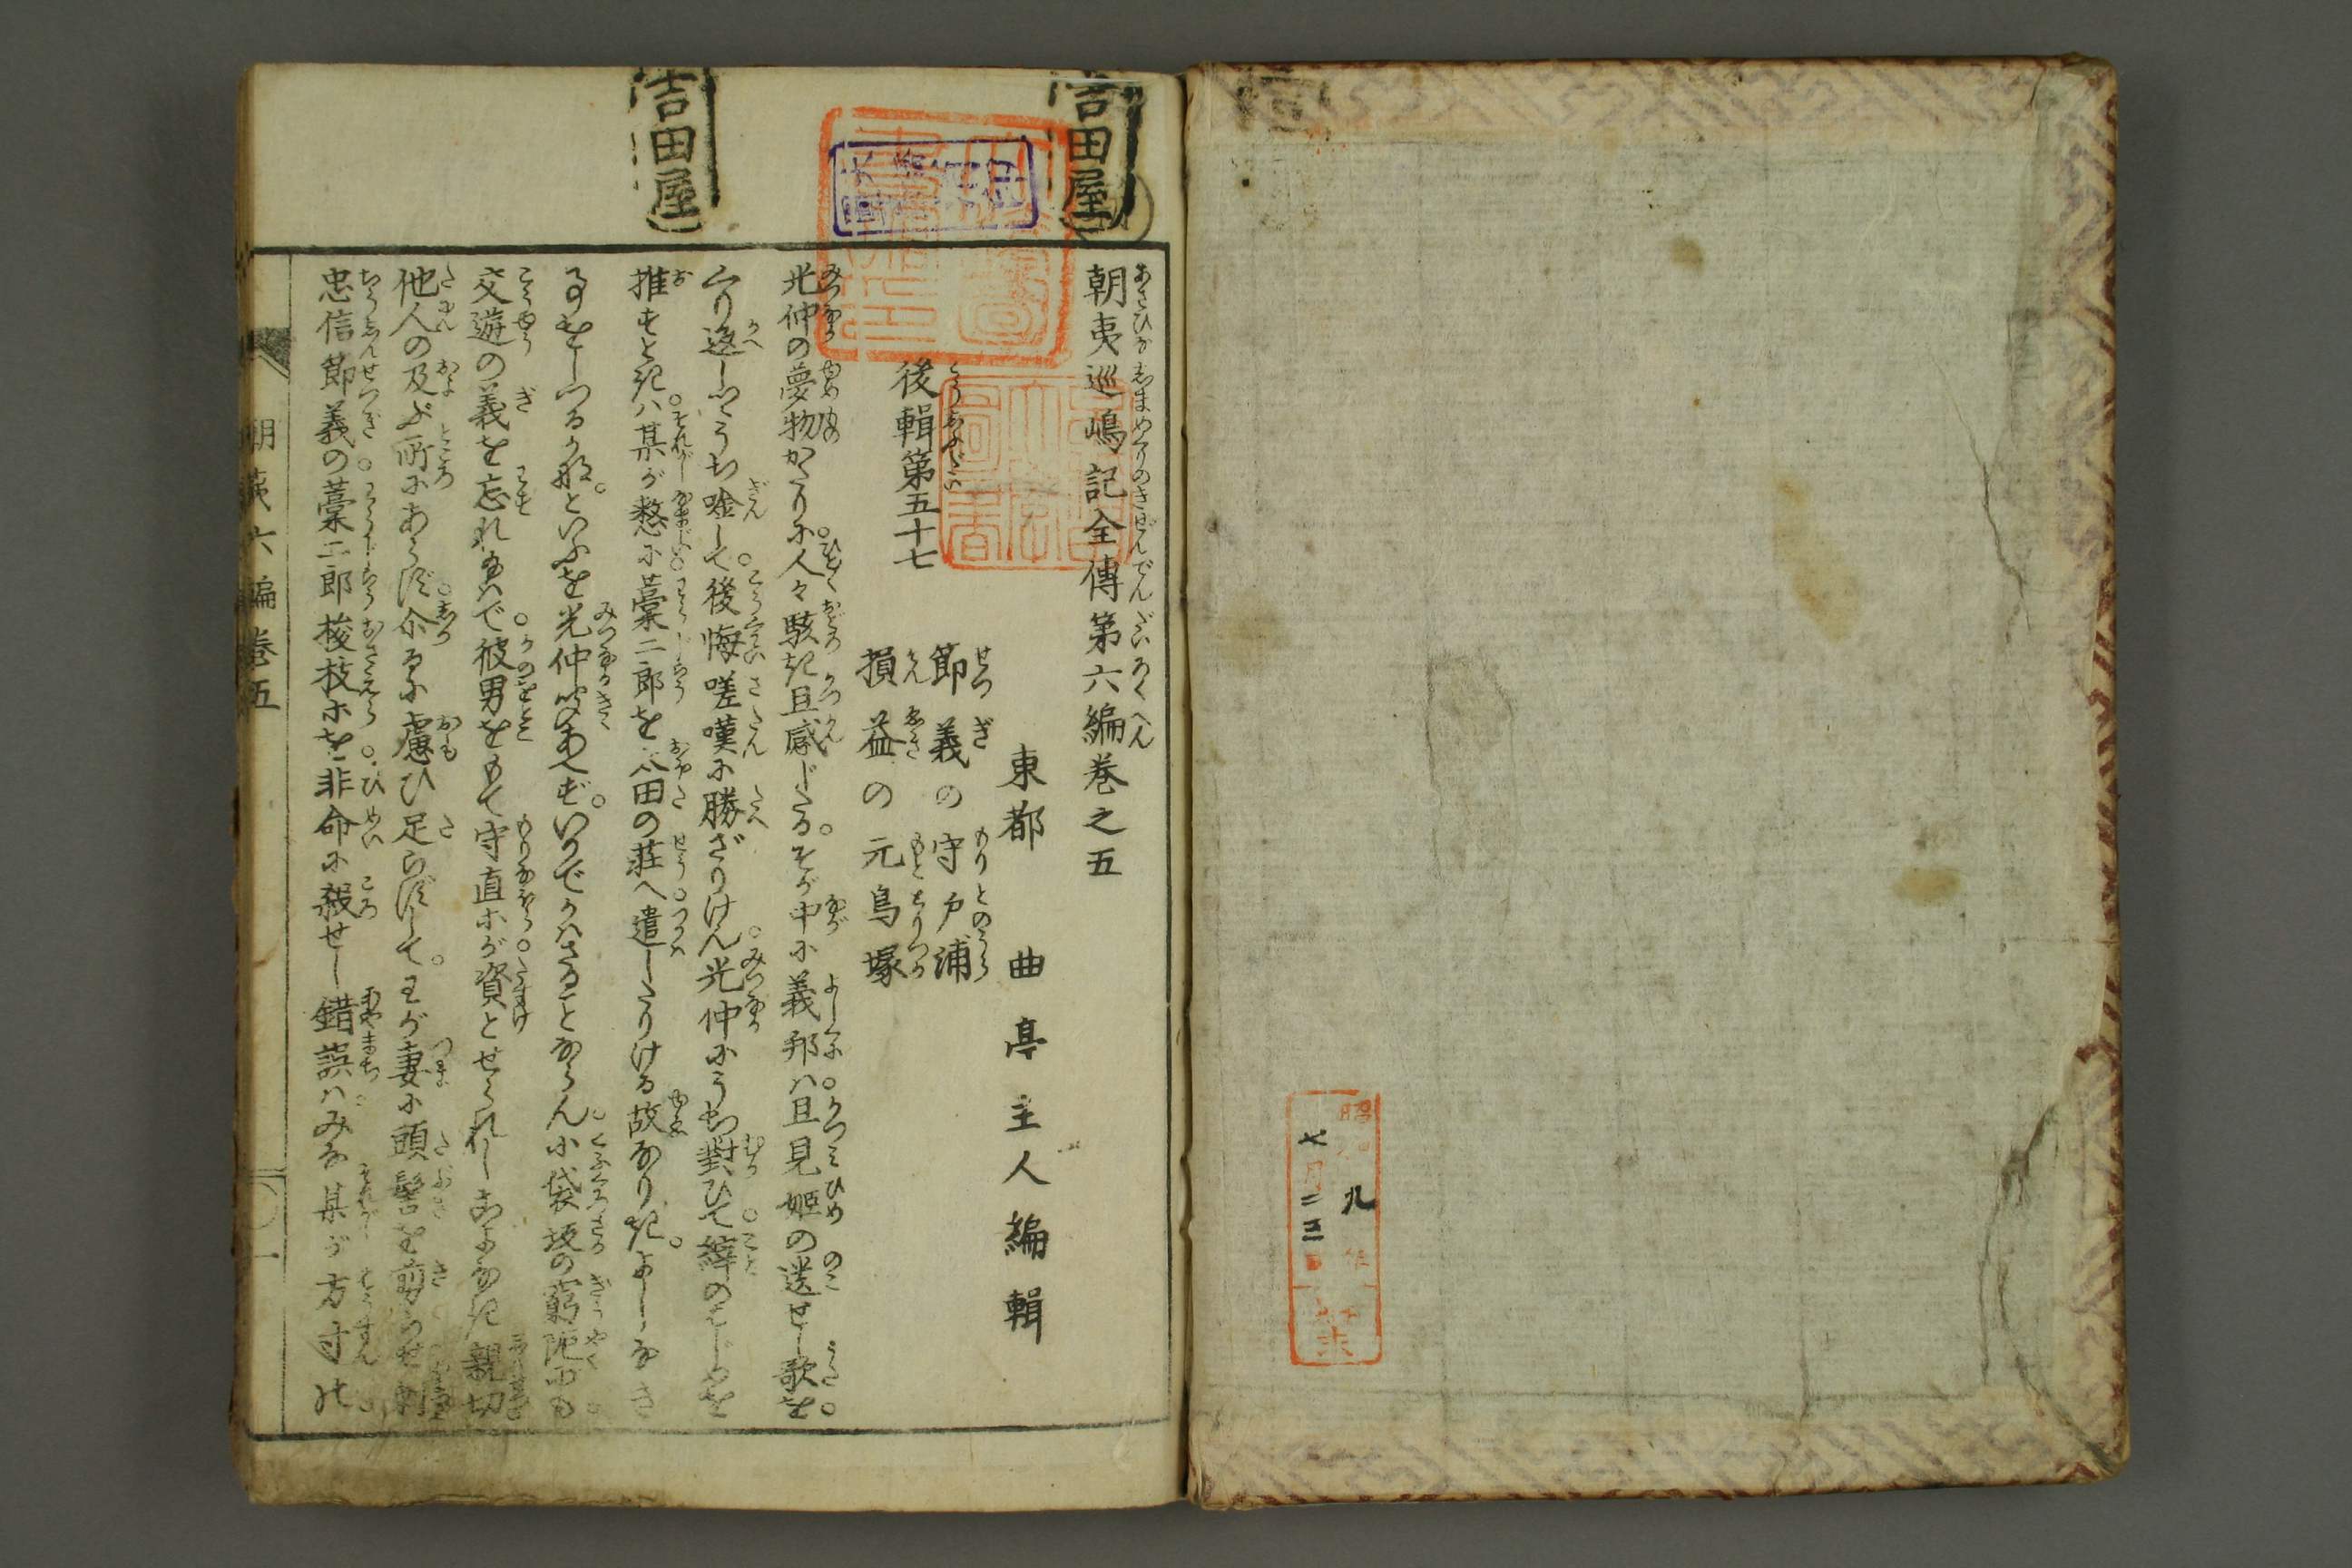 吉田屋
吉田屋
朝夷巡嶋記全傳第六編巻之五
東都 曲亭主人編輯
後輯第五十七
節義の守戸浦
損益の元鳥塚
光仲の夢物がたりに人々駭き且感じたる。そが中に義邦ハ且見姫の遺せし歌を
くり返しつゝうち唫して後悔嗟嘆に勝ざりけん光仲にうち對ひて縡のはじめを
推もとき八某が憖に藁二郎を太田の荘へ遣したりける故なりき。よしなき
といふを光仲聞あへず。いかでかハさることあらん小袋坂の窮阨にも
交遊の義を忘れ給ハで彼男をもて守直ホが資とせられしこよなき親切
他人の及ぶ所にあらず尒るに慮ひ足らずしてわが妻に頭髻を剪らせ
忠信節義の藁二郎梭枝ホを非命に殺せし錯誤ハみな某が方寸の
朝夷六編巻五
昭和九年
七月二三日